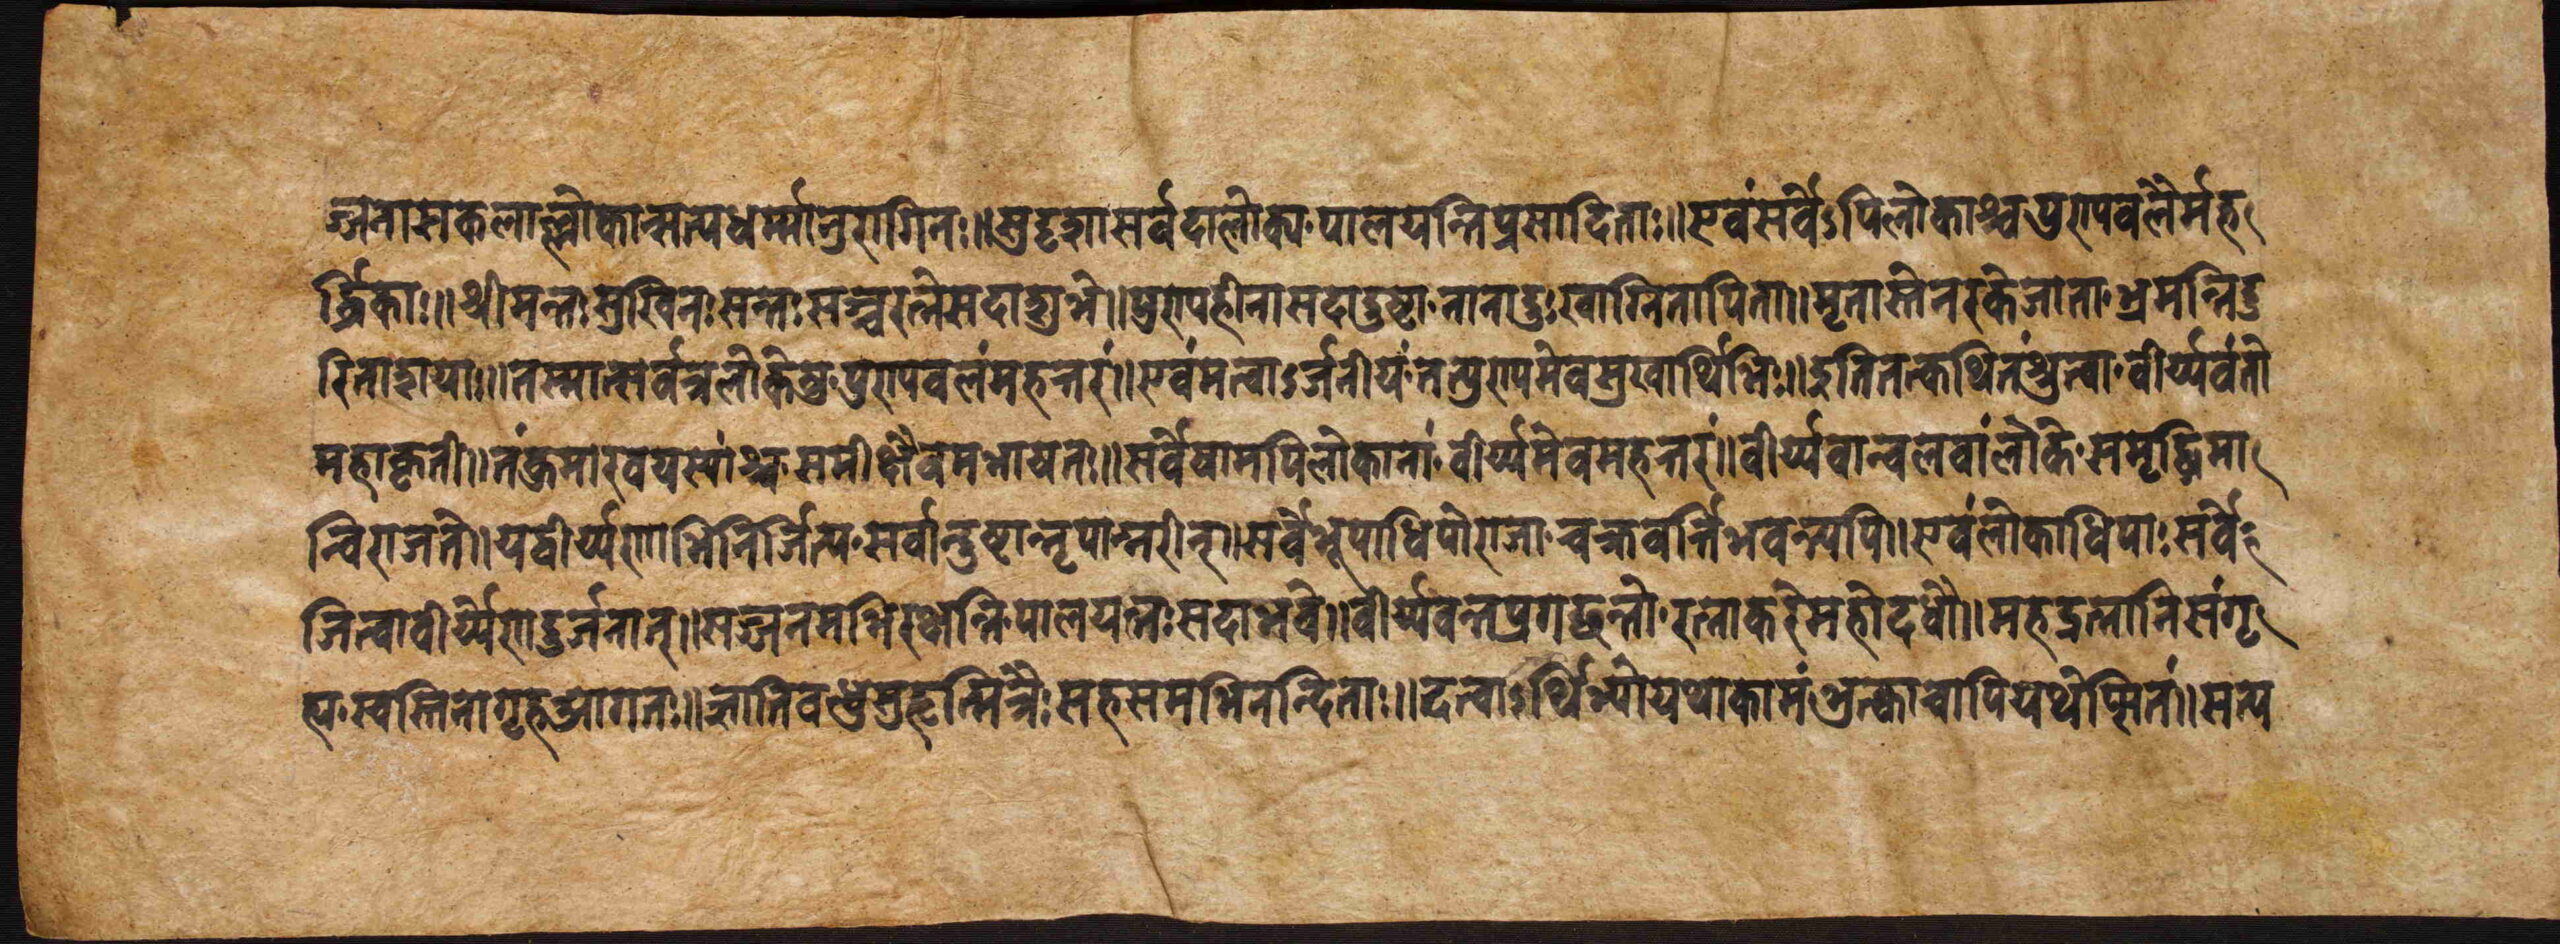 ज्जनासकलाल्लोकान्सत्यधर्म्मानुरागिनः॥सुदृशासर्वदालोक्य·पालयन्तिप्रसादिताः॥एवंसर्वेऽपिलोकाश्चपुण्यवलैर्मह
र्द्धिकाः॥श्रीमन्तःसुखिनःसन्तःसञ्चरन्तेसदाशुभे॥पुण्यहीनासदादुष्टा·नानादुःखाग्नितापिता॥मृतास्तेनरकेजाता·भ्रमन्तिदु
रिताशयाः॥तस्मात्सर्वत्रलोकेषु·पुण्यवलंमहत्तरं॥एवंमत्वाऽर्जनीयं·तत्पुण्यमेवसुखार्थिभिः॥इतितत्कथितंश्रुत्वा·वीर्य्यवंतो
महाकृती॥तंकुमारवयस्यांश्च·समीक्ष्यैवमभाषतः॥सर्वेषामपिलोकानां·वीर्य्यमेवमहत्तरं॥वीर्य्यवान्वलवांलोके·समृद्धिमा
न्विराजते॥यद्वीर्य्येणाभिनिर्जित्य·सर्वान्दुष्टान्नृपान्नरीन्॥सर्वभूपाधिपोराजा·चक्रवर्त्तिभवन्त्यपि॥एवंलोकाधिपाःसर्वे
जित्वावीर्य्येणदुर्जनान्॥सज्जनमभिरक्षन्ति·पालयन्तःसदाभवे॥वीर्य्यवन्तप्रगच्छन्तो·रत्नाकरेमहोदधौ॥महद्रत्नानिसंगृ
ह्य·स्वस्तिनागृहआगतः॥ज्ञातिवन्धुसुहृन्मित्रैः·सहसमभिनन्दिताः॥दत्वाऽर्थिभ्योयथाकामंभुक्त्वाचापियथेप्सितं॥सत्य